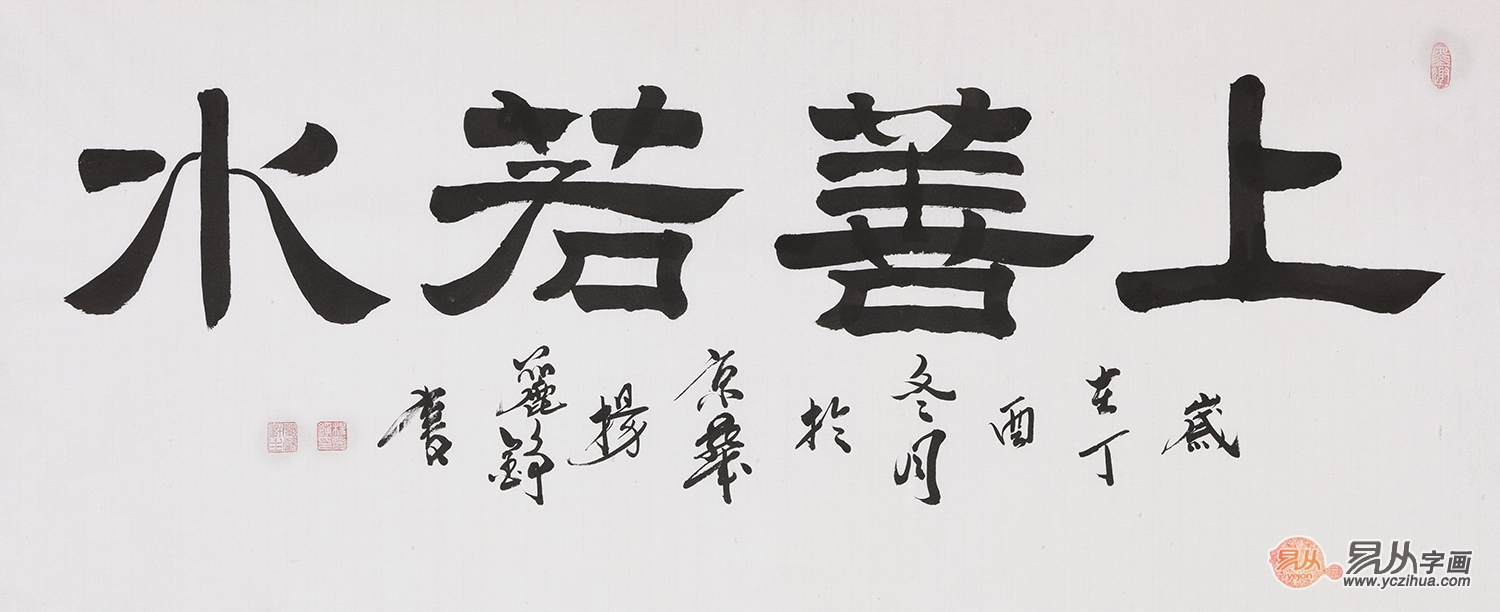 上善若水
歲在丁酉冬月於京華楊麗錚書
易从字画
yicjon
www.yczihua.com